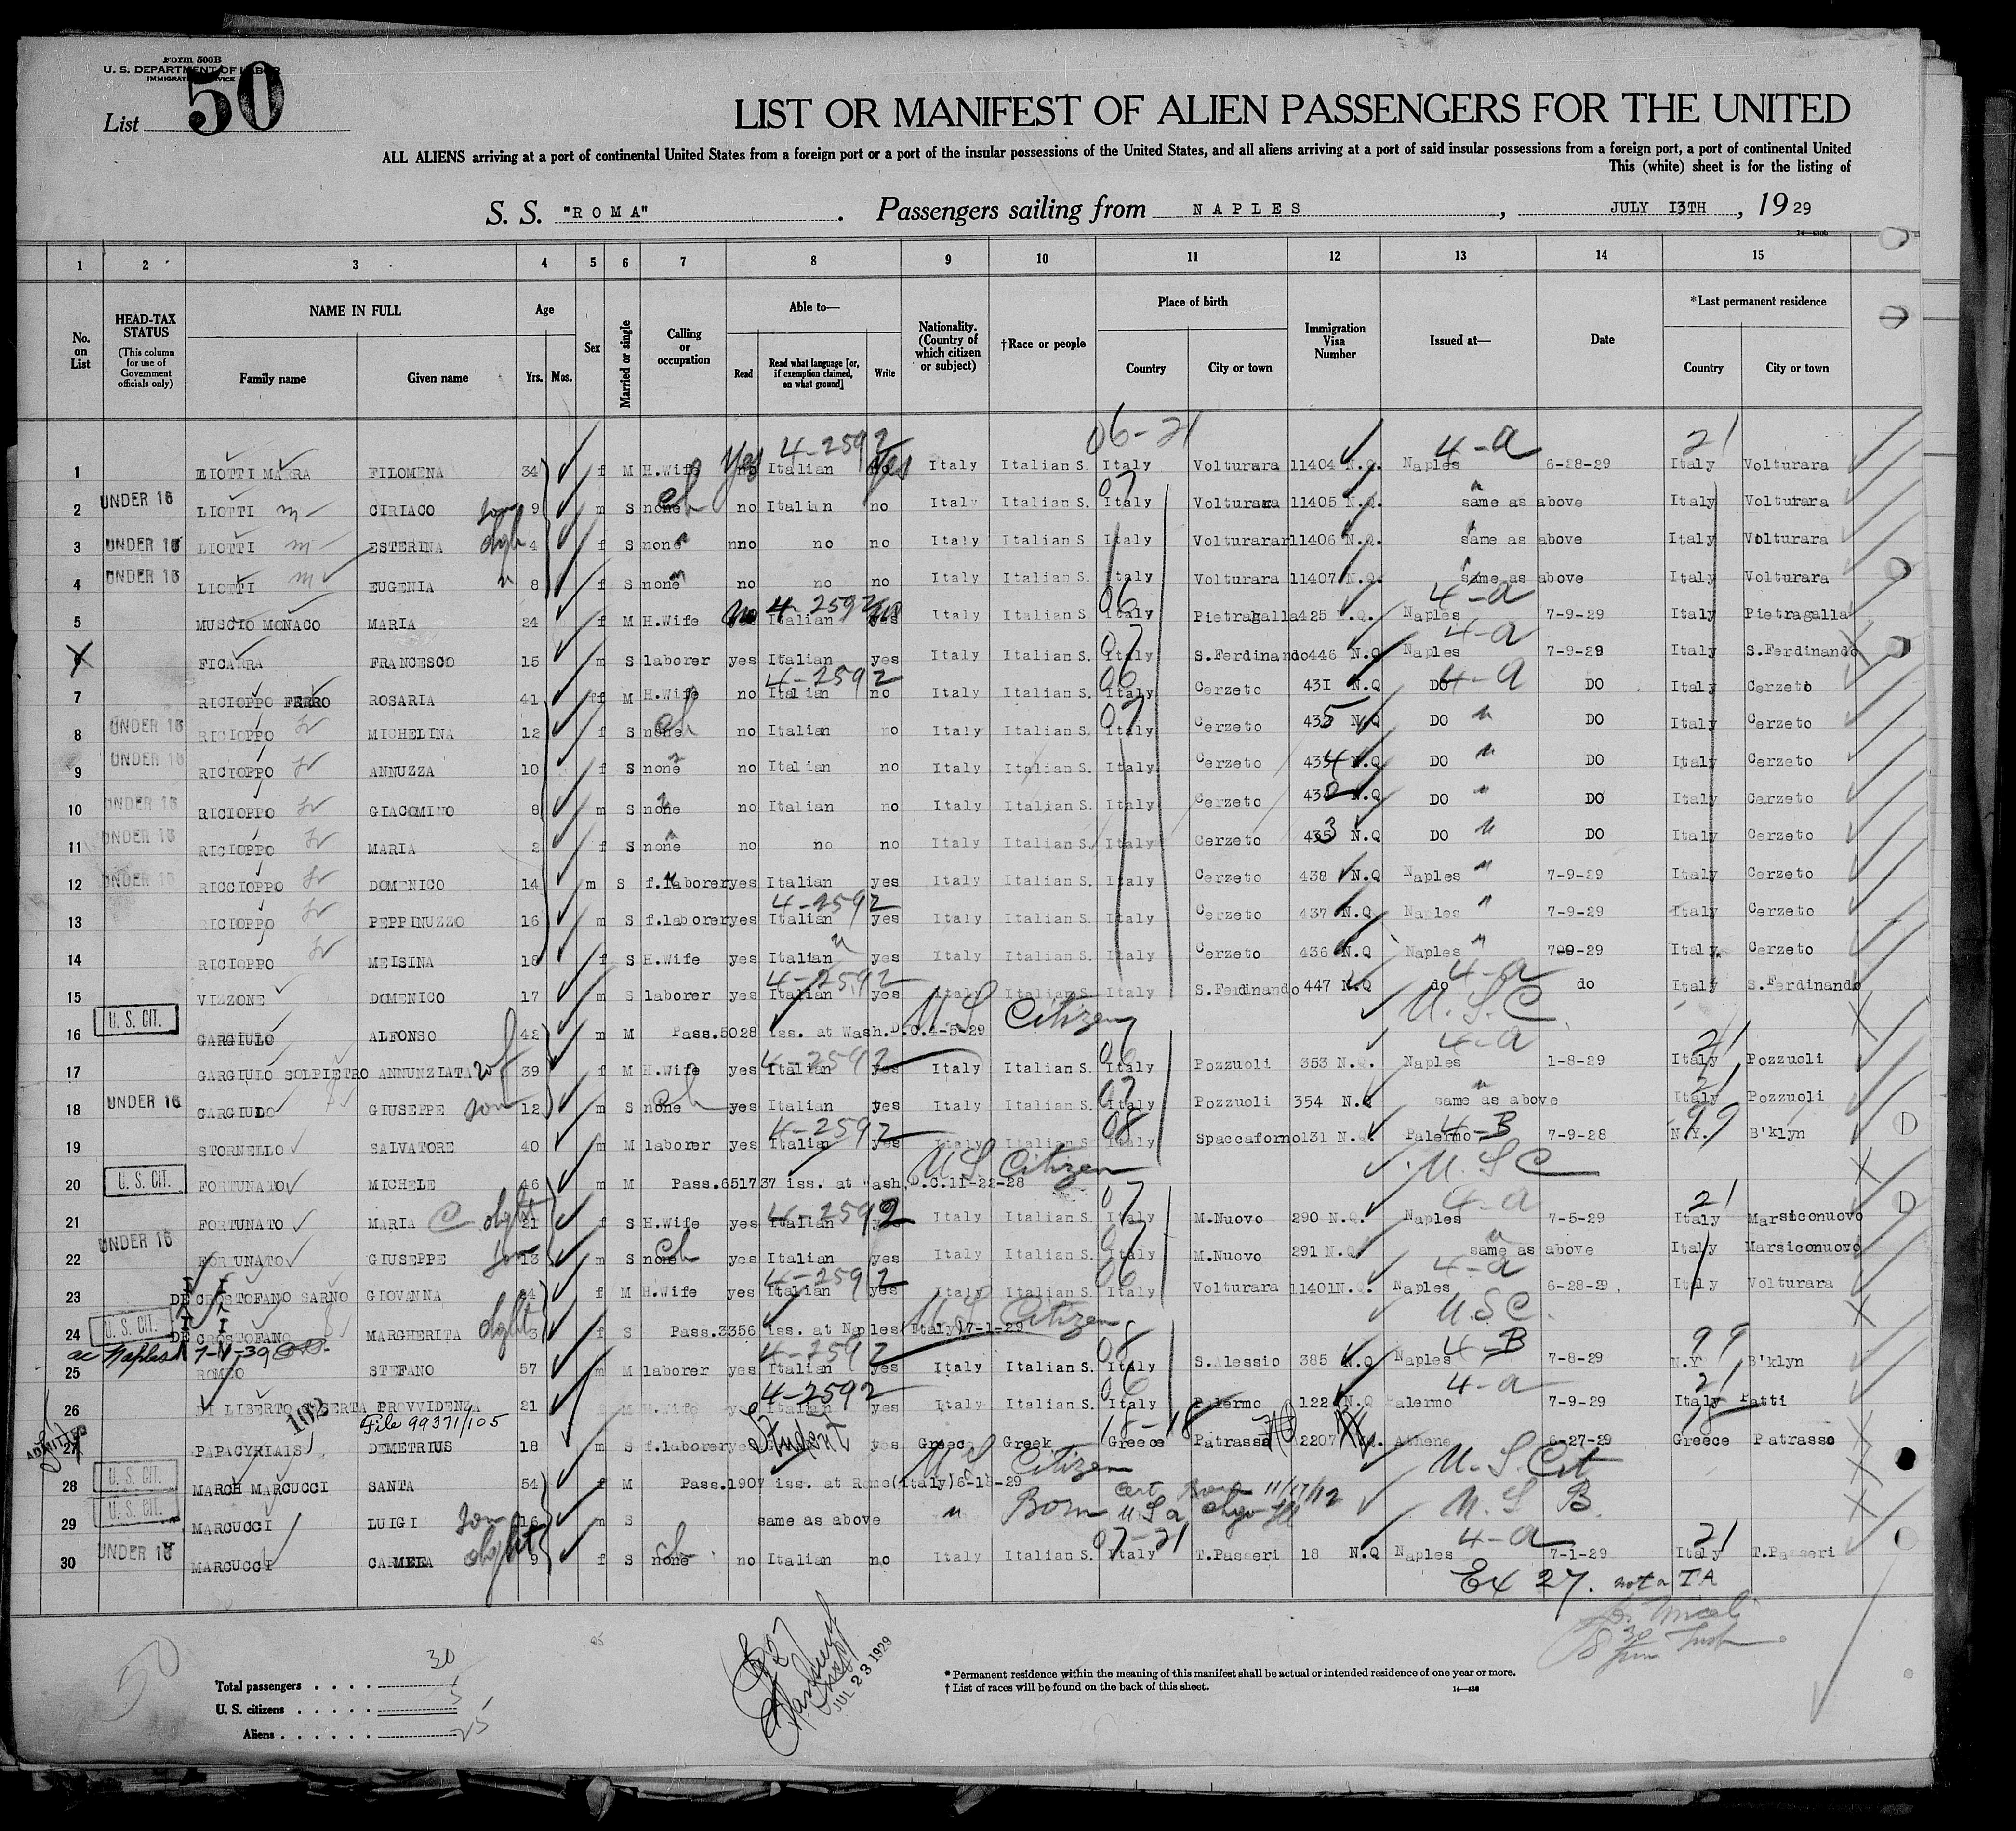 Form 500B
U. S. DEPARTMENT OF LABOR
IMMIGRATION SERVICE
List 50
LIST OR MANIFEST OF ALIEN PASSENGERS FOR THE UNITED
ALL ALIENS arriving at a port of continental United States from a foreign port or a port of the insular possessions of the United States, and all aliens arriving at a port of said insular possessions from a foreign port, a port of continental United
This (white) sheet is for the listing of
S. S. "ROMA". Passengers sailing from NAPLES, JULY 13TH, 1929
1 2 3 4 5 6 7 8 9 10 11 12 13 14 15
No. on List
HEAD-TAX STATUS
(This column for use of Government officials only)
NAME IN FULL
Family name
Given name
Age
Yrs.
Mos.
Sex
Married or single
Calling or occupation
Able to—
Read
Read what language [or, if exemption claimed, on what ground]
Write
Nationality. (Country of which citizen or subject)
†Race or people
Place of birth
Country
City or town
Immigration Visa Number
Issued at—
Date
*Last permanent residence
Country
City or town
06-21 4-2592 4-a 21
1 LIOTTI MARRA FILOMENA 34 f M H.Wife Yes Italian Yes Italy Italian S. Italy Volturara 11404 N.Q. Naples 6-28-29 Italy Volturara
2 UNDER 16 LIOTTI m CIRIACO son 9 m S none ch no Italian no Italy Italian S. 07 Italy Volturara 11405 N.Q. same as above Italy Volturara
3 UNDER 16 LIOTTI m ESTERINA dght 4 f S none nno no no Italy Italian S. Italy Volturara 11406 N.Q. same as above Italy Volturara
4 UNDER 16 LIOTTI m EUGENIA " 8 f S none no no no Italy Italian S. Italy Volturara 11407 N.Q. same as above Italy Volturara
4-2592 06 4-a
5 MUSCIO MONACO MARIA 24 f M H.Wife no Italian no Italy Italian S. Italy Pietragalla 425 N.Q. Naples 7-9-29 Italy Pietragalla
07 4-a
6 FICARRA FRANCESCO 15 m S laborer yes Italian yes Italy Italian S. Italy S.Ferdinando 446 N.Q Naples 7-9-29 Italy S.Ferdinando
4-2592 06 4-a
7 RICIOPPO FERRO ROSARIA 41 f M H.Wife no Italian no Italy Italian S. Italy Cerzeto 431 N.Q DO DO Italy Cerzeto
8 UNDER 16 RICIOPPO MICHELINA 12 f S none ch no Italian no Italy Italian S. 07 Italy Cerzeto 435 N.Q DO " DO Italy Cerzeto
9 UNDER 16 RICIOPPO ANNUZZA 10 f S none no Italian no Italy Italian S. Italy Cerzeto 434 N.Q DO " DO Italy Cerzeto
10 UNDER 16 RICIOPPO GIACOMINO 8 m S none no Italian no Italy Italian S. Italy Cerzeto 432 N.Q DO " DO Italy Cerzeto
11 UNDER 16 RICIOPPO MARIA 2 f S none no no no Italy Italian S. Italy Cerzeto 433 N.Q DO " DO Italy Cerzeto
12 UNDER 16 RICCIOPPO DOMENICO 14 m S f.laborer yes Italian yes Italy Italian S. Italy Cerzeto 438 N.Q Naples " 7-9-29 Italy Cerzeto
4-2592
13 RICIOPPO PEPPINUZZO 16 m S f.laborer yes Italian yes Italy Italian S. Italy Cerzeto 437 N.Q Naples " 7-9-29 Italy Cerzeto
14 RICIOPPO MEISINA 18 f S H.Wife yes Italian yes Italy Italian S. Italy Cerzeto 436 N.Q Naples " 7-9-29 Italy Cerzeto
4-2592 4-a
15 VIZZONE DOMENICO 17 m S laborer yes Italian yes Italy Italian S. Italy S.Ferdinando 447 N.Q do do Italy S.Ferdinando
16 U. S. CIT. GARGIULO ALFONSO 42 m M Pass.5028 iss. at Wash.D.C.4-5-29 U S Citizen U.S.C
4-2592 06 4-a 21
17 GARGIULO SOLPIETRO ANNUNZIATA wf 39 f M H.Wife yes Italian yes Italy Italian S. Italy Pozzuoli 353 N.Q. Naples 1-8-29 Italy Pozzuoli
18 UNDER 16 GARGIULO GIUSEPPE son 12 m S none ch yes Italian yes Italy Italian S. 07 Italy Pozzuoli 354 N.Q same as above 21 Italy Pozzuoli
4-2592 08 4-B 99
19 STORNELLO SALVATORE 40 m M laborer yes Italian yes Italy Italian S Italy Spaccaforno 131 N.Q. Palermo 7-9-28 N.Y. B'klyn
20 U. S. CIT. FORTUNATO MICHELE 46 m M Pass.651737 iss. at Wash.D.C.11-22-28 U S Citizen U.S C
4-2592 07 4-a 21
21 FORTUNATO MARIA C dght 21 f S H.Wife yes Italian yes Italy Italian S. Italy M.Nuovo 290 N.Q. Naples 7-5-29 Italy Marsiconuovo
22 UNDER 16 FORTUNATO GIUSEPPE son 13 m S none ch yes Italian yes Italy Italian S. 07 Italy M.Nuovo 291 N.Q same as above Italy Marsiconuovo
4-2592 06 4-a
23 DE CROSTOFANO SARNO GIOVANNA f M H.Wife yes Italian yes Italy Italian S. Italy Volturara 11401N.Q. Naples 6-28-29 Italy Volturara
24 U. S. CIT. DE CROSTOFANO MARGHERITA dght 3 f S Pass.3356 iss. at Naples(Italy)7-1-29 U S Citizen U.S.C.
4-2592 08 4-B 99
25 ROMEO STEFANO 57 m M laborer yes Italian yes Italy Italian S. Italy S.Alessio 385 N.Q Naples 7-8-29 N.Y B'klyn
4-2592 06 4-a 21
26 DI LIBERTO PROVVIDENZA 21 M H.Wife yes Italian yes Italy Italian S. Italy Palermo 122 N.Q Palermo 7-9-29 Italy Patti
File 99371/105 18-18 18
ADMITTED 27 PAPACYRIAIS DEMETRIUS 18 m S f.laborer yes Student yes Greece Greek Greece Patrasso 2207 Athene 6-27-29 Greece Patrasso
28 U. S. CIT. MARCH MARCUCCI SANTA 54 f M Pass.1907 iss. at Rome(Italy)6-18-29 U S Citizen U.S.Cit
29 U. S. CIT. MARCUCCI LUIGI son 16 m S same as above " Born U S a 11/17/12 U S B.
07-21 4-a 21
30 UNDER 16 MARCUCCI CARMELA dght 9 f S none ch no Italian no Italy Italian S. Italy T.Passeri 18 N.Q Naples 7-1-29 Italy T.Passeri
Ex 27. not a TA
Total passengers 30
U. S. citizens 5
Aliens 25
JUL 23 1929
* Permanent residence within the meaning of this manifest shall be actual or intended residence of one year or more.
† List of races will be found on the back of this sheet.